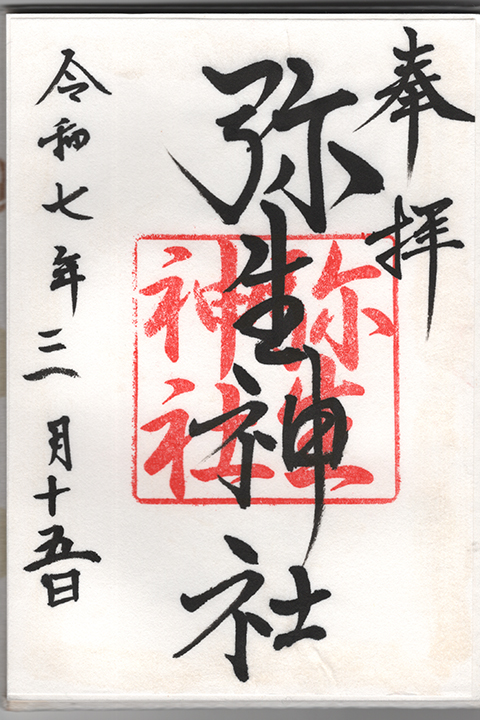 奉拝
弥生神社
弥生
神社
令和七年三月十五日